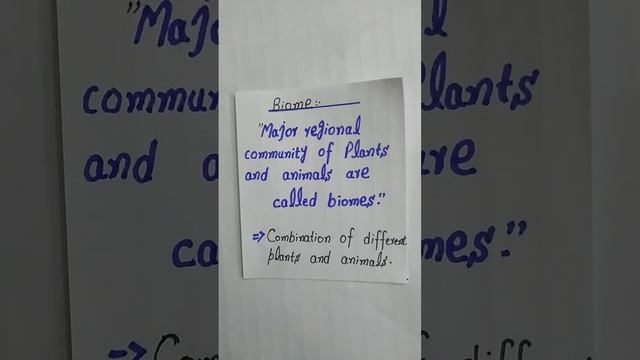 Biome:-
"Major regional
community of Plants
and animals are
called biomes."
=> Combination of different
plants and animals.